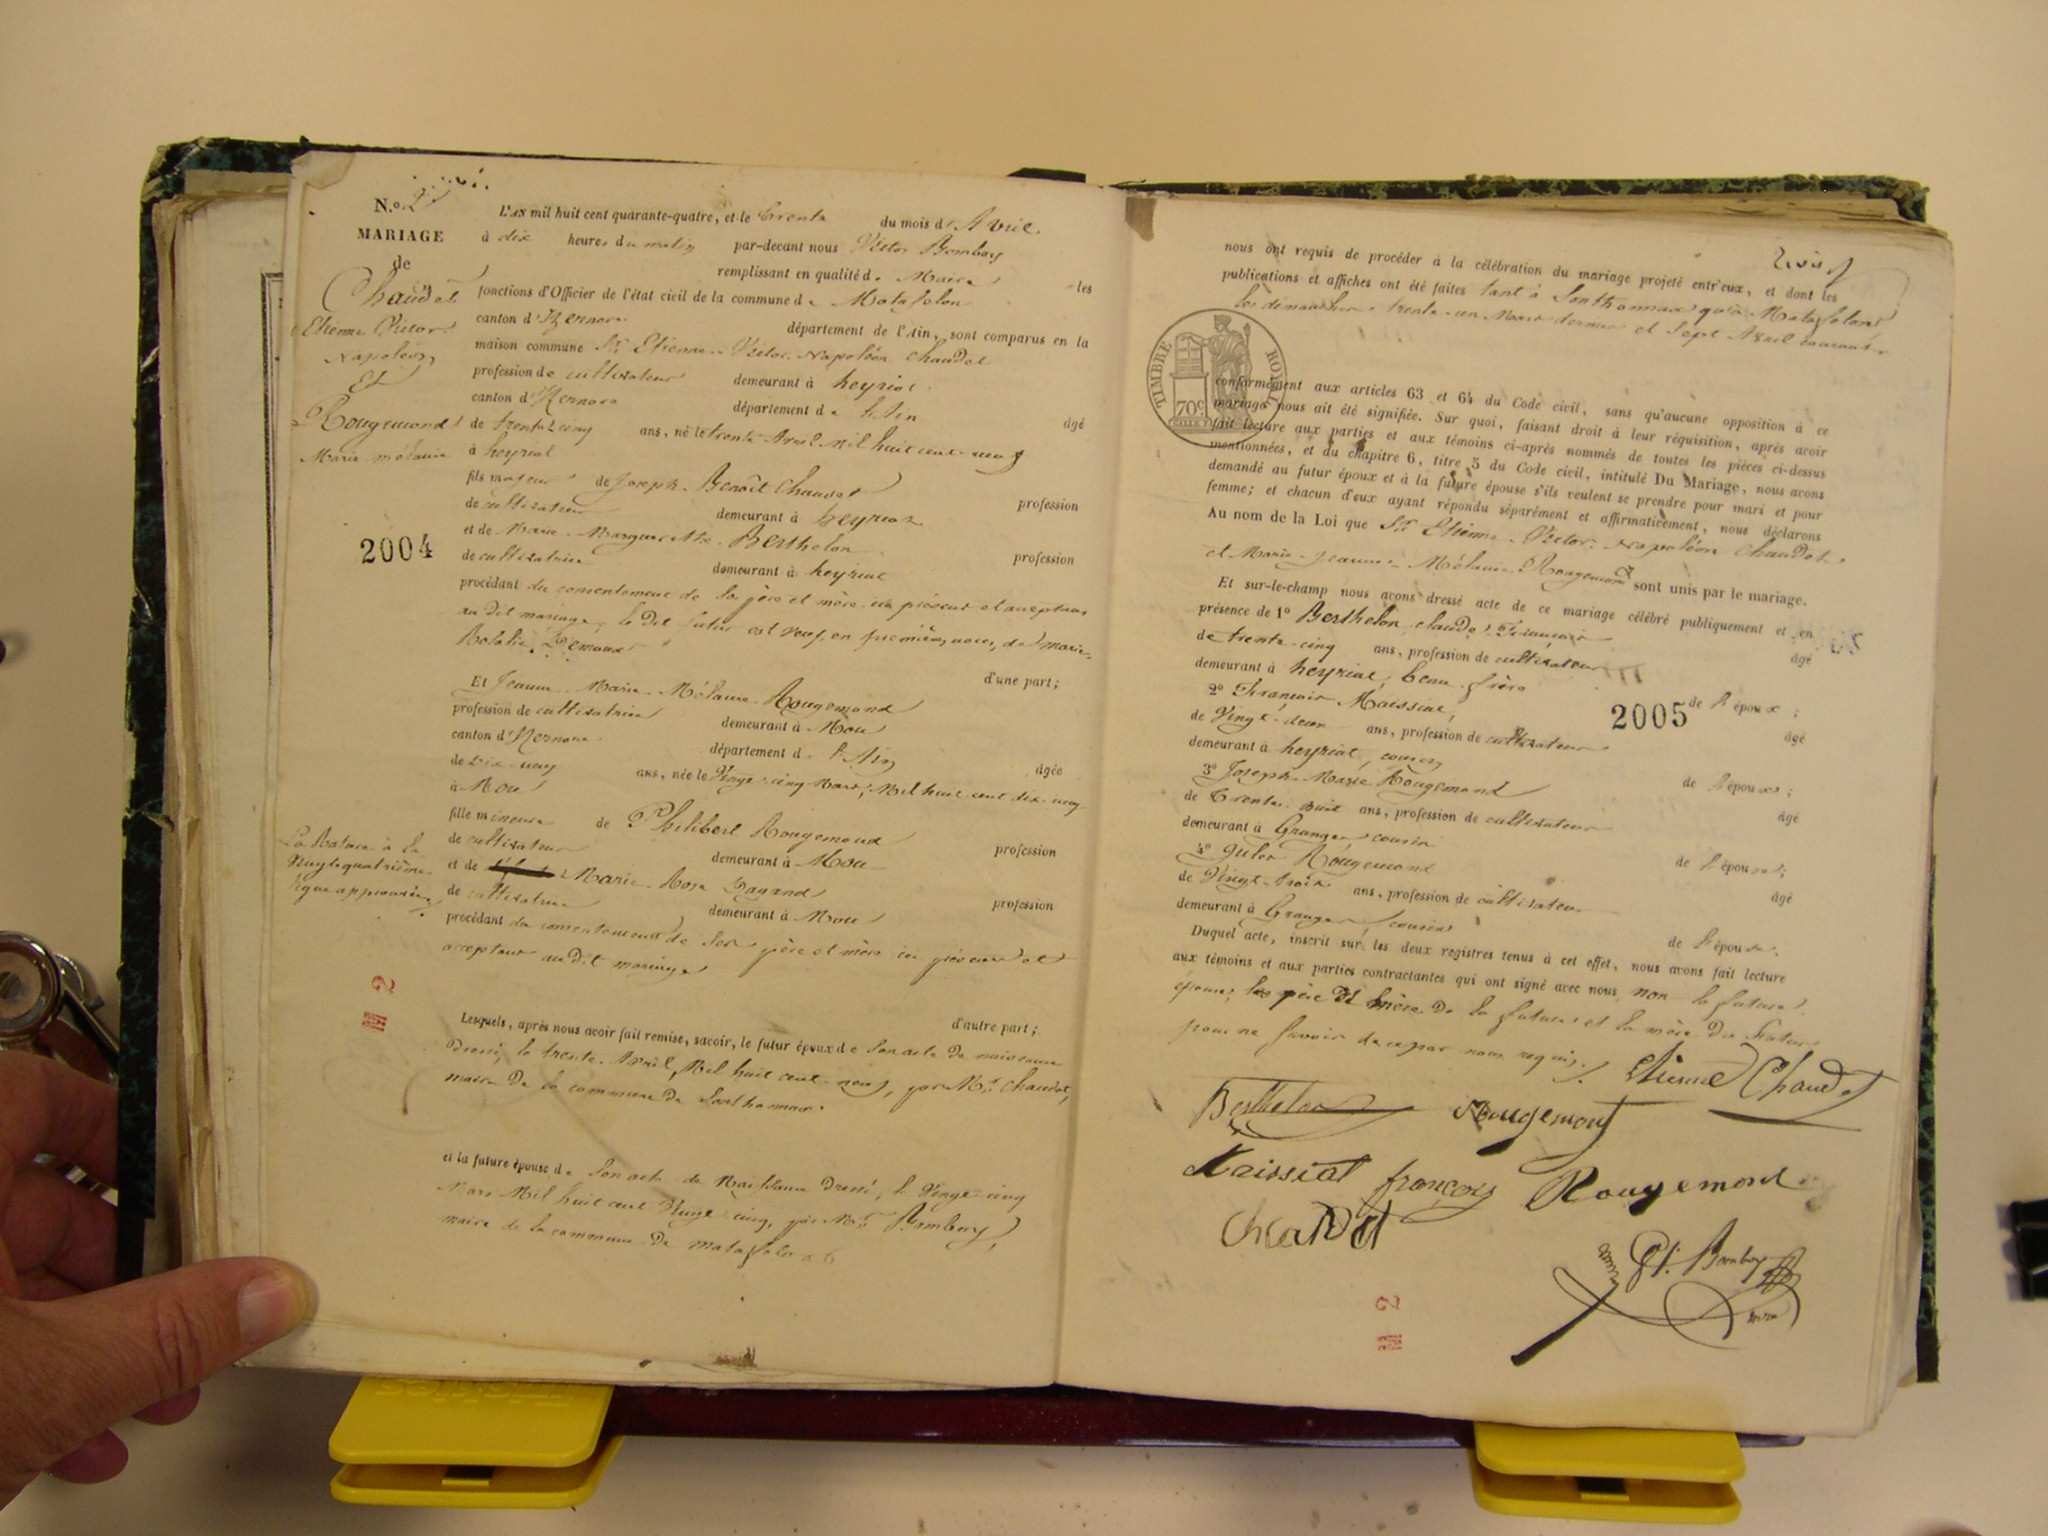 N.o
MARIAGE
de
Chaudet
Etienne Victor
Napoléon
Et
Rougemond
Marie mélanie
2004
La Rature à la
Vingt quatrième
ligne approuvée
L'AN mil huit cent quarante-quatre, et le trente du mois d'Avril
à dix heures du matin par-devant nous Victor Bomboy
remplissant en qualité de Maire les
fonctions d'Officier de l'état civil de la commune de Matafelon
canton d'Izernore département de l'Ain, sont comparus en la
maison commune Sr. Etienne Victor Napoléon Chaudet
profession de cultivateur demeurant à heyriat
canton d'Izernore département de l'Ain âgé
de trente cinq ans, né le trente Avril mil huit cent neuf
à heyriat
fils majeur de Joseph Benoît Chaudet profession
de cultivateur demeurant à heyriat
et de Marie Marguerithe Berthelon profession
de cultivatrice demeurant à heyriat
procédant du consentement de ses père et mère ici présent et acceptant
au dit mariage, le dit futur est veuf en premières noces, de marie
d'une part;
Et Jeanne Marie Mélanie Rougemond
profession de cultivatrice demeurant à Mou
canton d'Izernore département de l'Ain âgée
de dix-neuf ans, née le Vingt-cinq Mars, Mil huit cent
à Mou
fille mineure de Philibert Rougemond profession
de cultivateur demeurant à Mou
et de Marie Rose profession
de cultivatrice demeurant à Mou
procédant du consentement de ses père et mère ici présent et
acceptant au dit mariage
d'autre part;
Lesquels, après nous avoir fait remise, savoir, le futur époux de son acte de naissance
dressé, le trente Avril, Mil huit cent neuf, par Mr. Chaudet,
maire de la commune de Sonthonnax
et la future épouse de son acte de Naissance dressé, le Vingt cinq
Mars Mil huit cent Vingt cinq, par Mr. Bomboy,
maire de la commune de matafelon
nous ont requis de procéder à la célébration du mariage projeté entr'eux, et dont les
publications et affiches ont été faites tant à Sonthonnax qu'à Matafelon
les dimanches trente-un Mars dernier et Sept Avril courant
TIMBRE ROYAL
70c
conformément aux articles 63 et 64 du Code civil, sans qu'aucune opposition à ce
mariage nous ait été signifiée. Sur quoi, faisant droit à leur réquisition, après avoir
fait lecture aux parties et aux témoins ci-après nommés de toutes les pièces ci-dessus
mentionnées, et du chapitre 6, titre 5 du Code civil, intitulé Du Mariage, nous avons
demandé au futur époux et à la future épouse s'ils veulent se prendre pour mari et pour
femme; et chacun d'eux ayant répondu séparément et affirmativement, nous déclarons
Au nom de la Loi que Sr. Etienne Victor Napoléon Chaudet
et Marie Jeanne Mélanie Rougemond sont unis par le mariage.
Et sur-le-champ nous avons dressé acte de ce mariage célébré publiquement et en
présence de 1o Berthelon claude François âgé
de trente-cinq ans, profession de cultivateur
demeurant à heyriat, beau frère de l'époux;
2o François Maissiat, âgé
de Vingt-deux ans, profession de cultivateur
demeurant à heyriat, cousin de l'époux;
3o Joseph Marie Rougemond âgé
de Trente huit ans, profession de cultivateur
demeurant à Granges cousin de l'épouse;
4o Jules Rougemond âgé
de Vingt-trois ans, profession de cultivateur
demeurant à Granges, cousin de l'épouse.
2005
Duquel acte, inscrit sur les deux registres tenus à cet effet, nous avons fait lecture
aux témoins et aux parties contractantes qui ont signé avec nous, non la future
épouse, les père et mère de la future et la mère du futur
pour ne savoir de ce par nous requis.
Etienne Chaudet
Berthelon Rougemont
Maissiat françois Rougemond
Chaudet
Bomboy
M 2
M 2